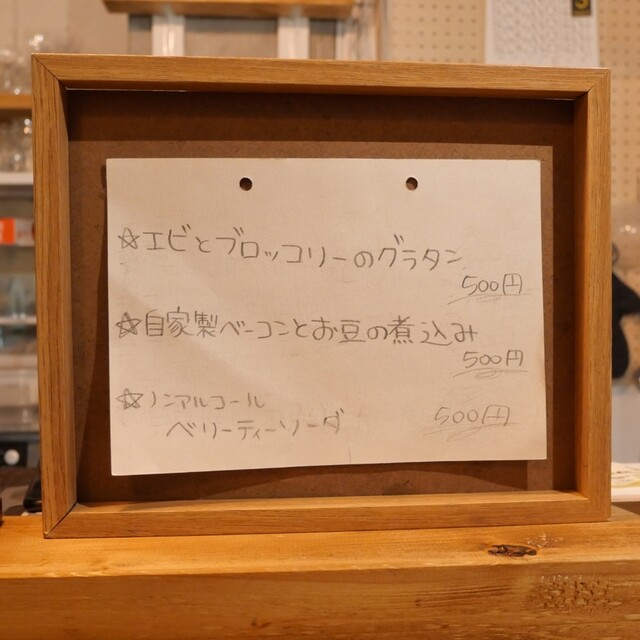 ☆エビとブロッコリーのグラタン
500円
☆自家製ベーコンとお豆の煮込み
500円
☆ノンアルコール
ベリーティーソーダ 500円